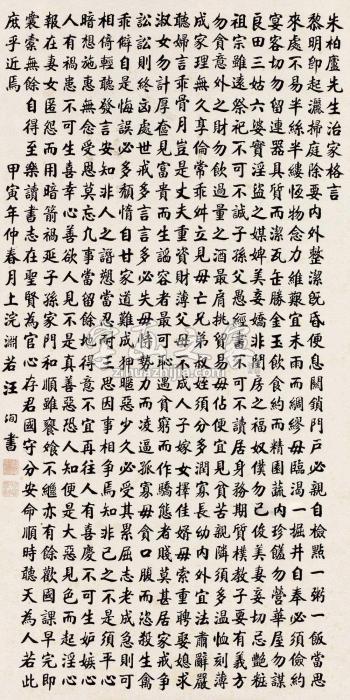 朱柏廬先生治家格言
黎明即起灑掃庭除要內外整潔既昏便息關鎖門戶必親自檢點一粥一飯當思
來處不易半絲半縷恆念物力維艱宜未雨而綢繆毋臨渴而掘井自奉必須儉約
宴客切勿留連器具質而潔瓦缶勝金玉飲食約而精園蔬勝珍饈勿營華屋勿謀
良田三姑六婆實淫盜之媒婢美妾嬌非閨房之福奴僕勿用俊美妻妾切忌艷粧
祖宗雖遠祭祀不可不誠子孫雖愚經書不可不讀居身務期質樸教子要有義方
勿貪意外之財勿飲過量之酒與肩挑貿易毋佔便宜見貧苦親鄰須多溫恤刻薄
成家理無久享倫常乖舛立見消亡兄弟叔姪須分多潤寡長幼內外宜法肅辭嚴
聽婦言乖骨肉豈是丈夫重資財薄父母不成人子嫁女擇佳婿毋索重聘娶媳求
淑女勿計厚奩見富貴而生諂容者最可恥遇貧窮而作驕態者賤莫甚居家戒爭
訟訟則終凶處世戒多言言多必失毋恃勢力而凌逼孤寡毋貪口腹而恣殺生禽
乖僻自是悔誤必多頹惰自甘家道難成狎暱惡少久必受其累屈志老成急則可
相倚輕聽發言安知非人之譖愬當忍耐三思因事相爭焉知非己之不是須平心
暗想施惠無念受恩莫忘凡事當留餘地得意不宜再往人有喜慶不可生妒嫉心
人有禍患不可生喜幸心善欲人見不是真善惡恐人知便是大惡見色而起淫心
報在妻女匿怨而用暗箭禍延子孫家門和順雖饔飧不繼亦有餘歡國課早完即
囊橐無餘自得至樂讀書志在聖賢為官心存君國守分安命順時聽天為人若此
庶乎近焉 甲寅年仲春月上浣淵若汪洵書